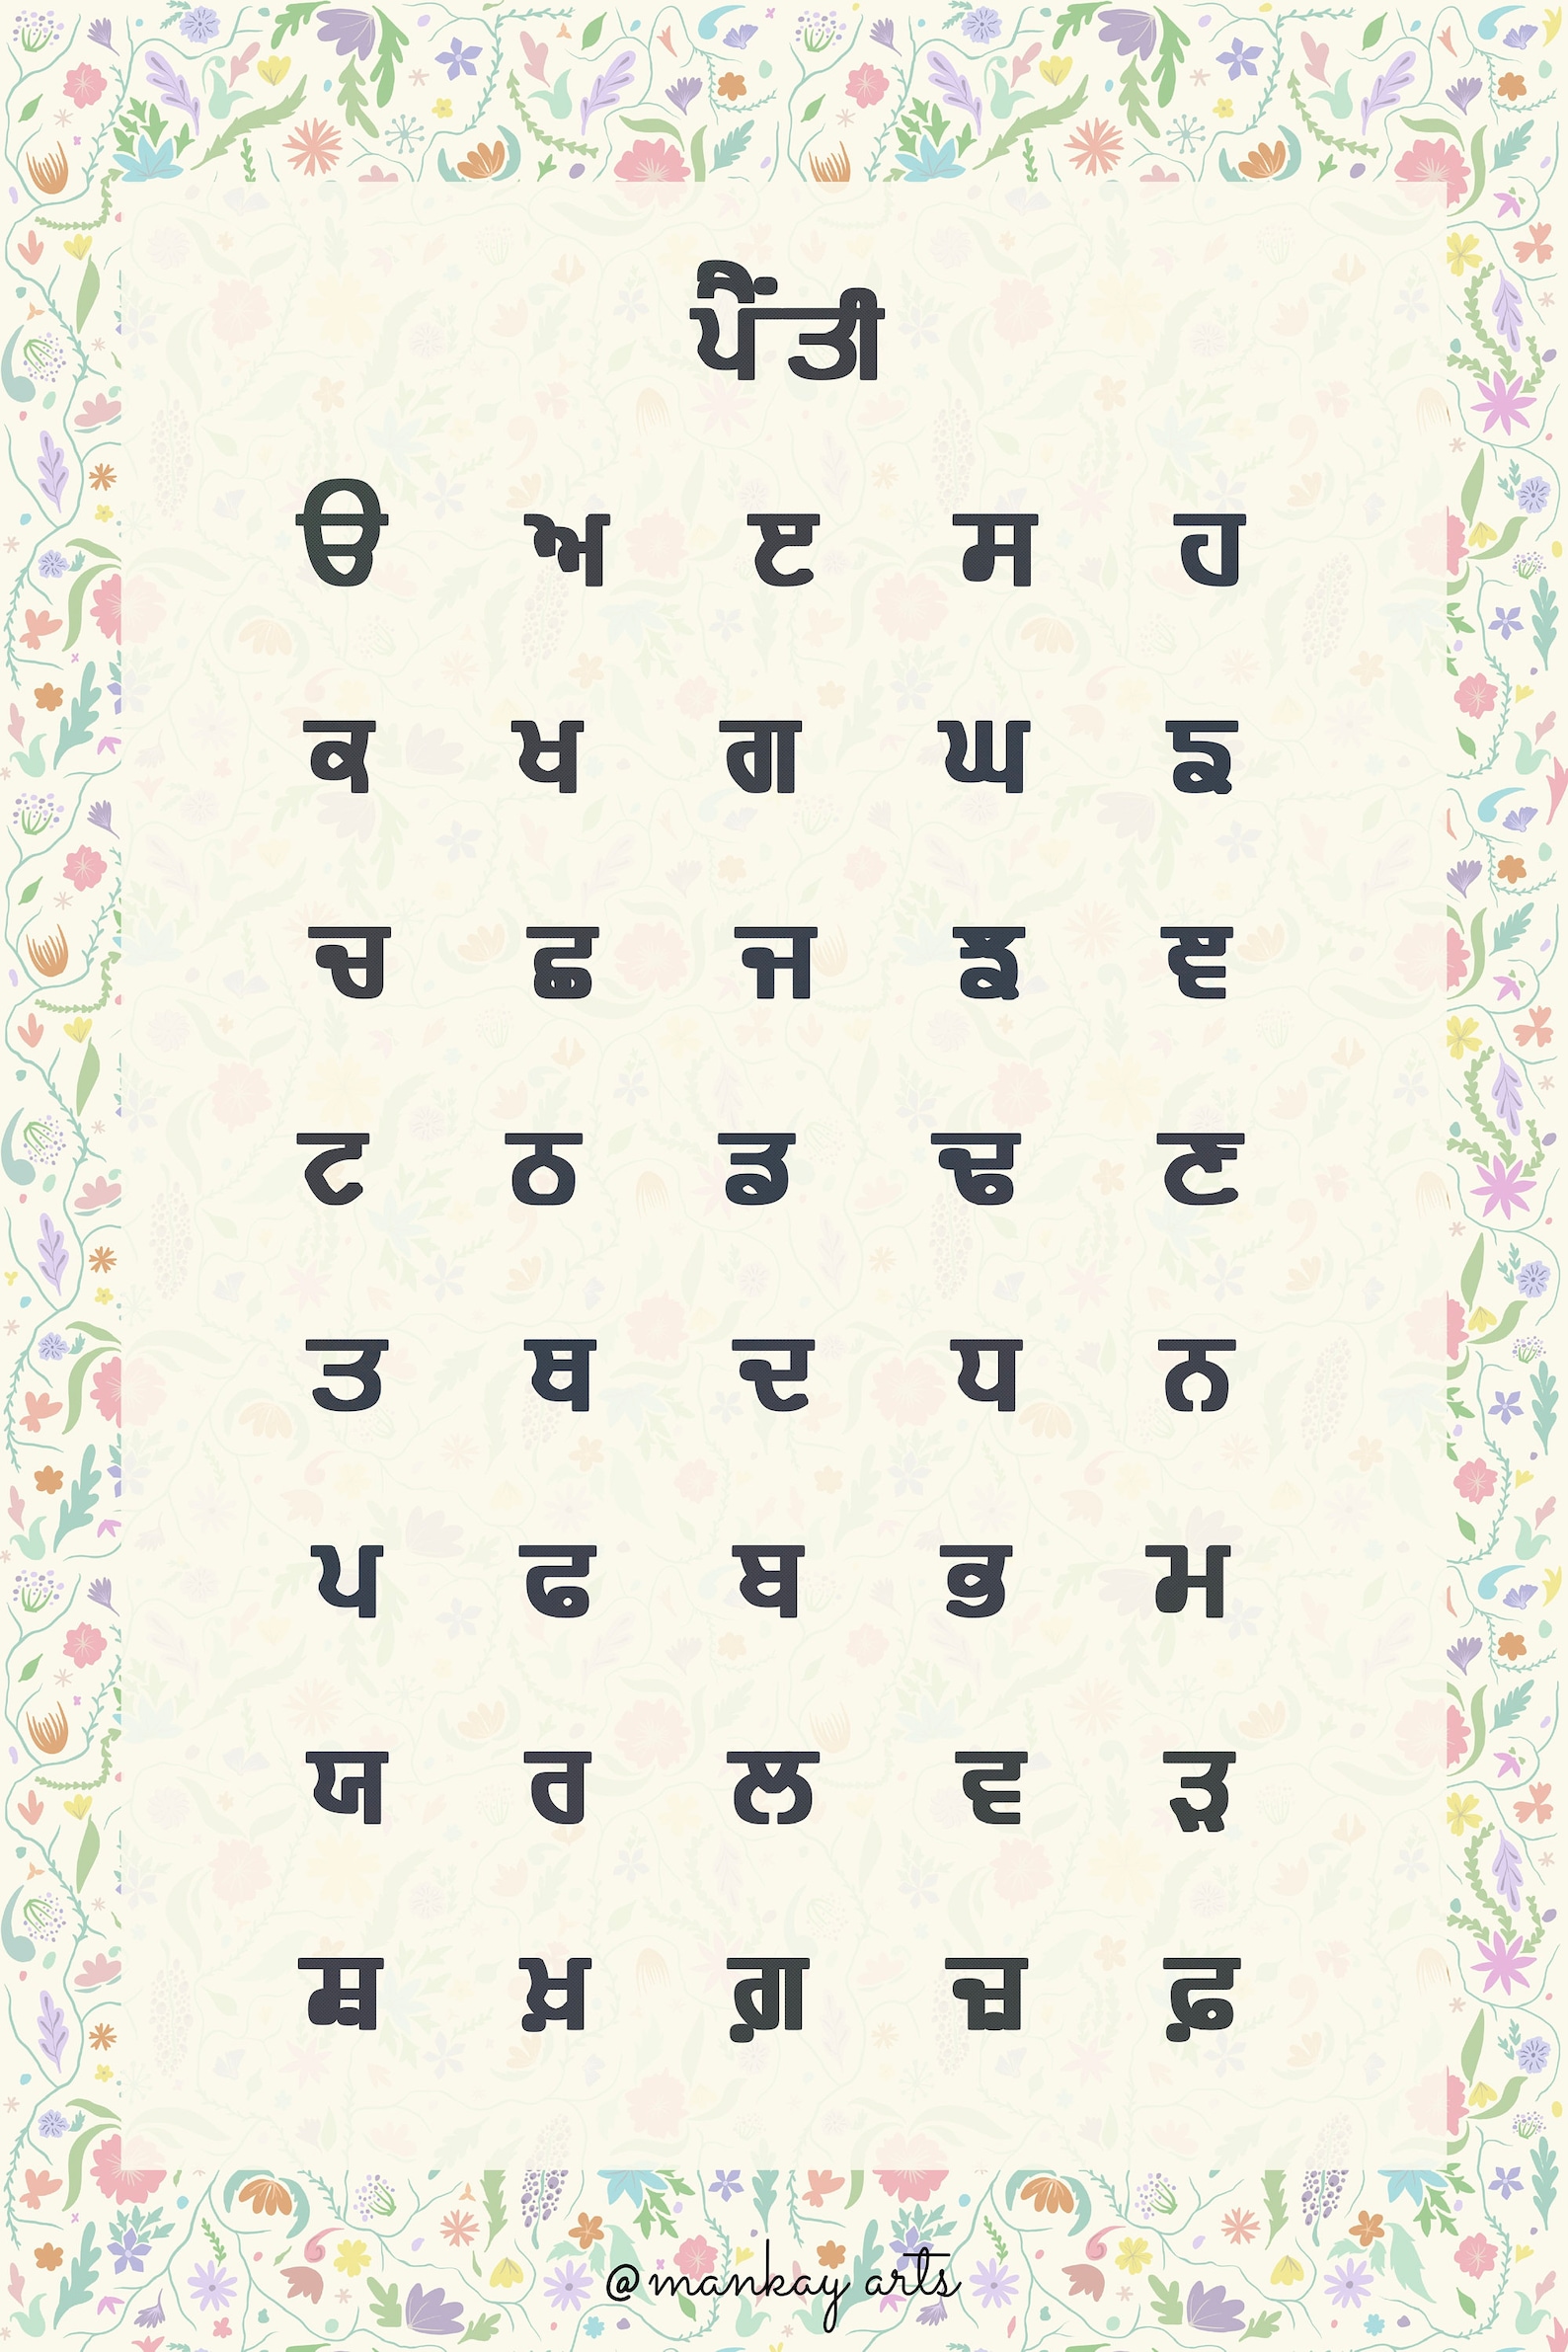 ਪੈਂਤੀ
ੳ ਅ ੲ ਸ ਹ
ਕ ਖ ਗ ਘ ਙ
ਚ ਛ ਜ ਝ ਞ
ਟ ਠ ਡ ਢ ਣ
ਤ ਥ ਦ ਧ ਨ
ਪ ਫ ਬ ਭ ਮ
ਯ ਰ ਲ ਵ ੜ
ਸ਼ ਖ਼ ਗ਼ ਜ਼ ਫ਼
@mankay arts